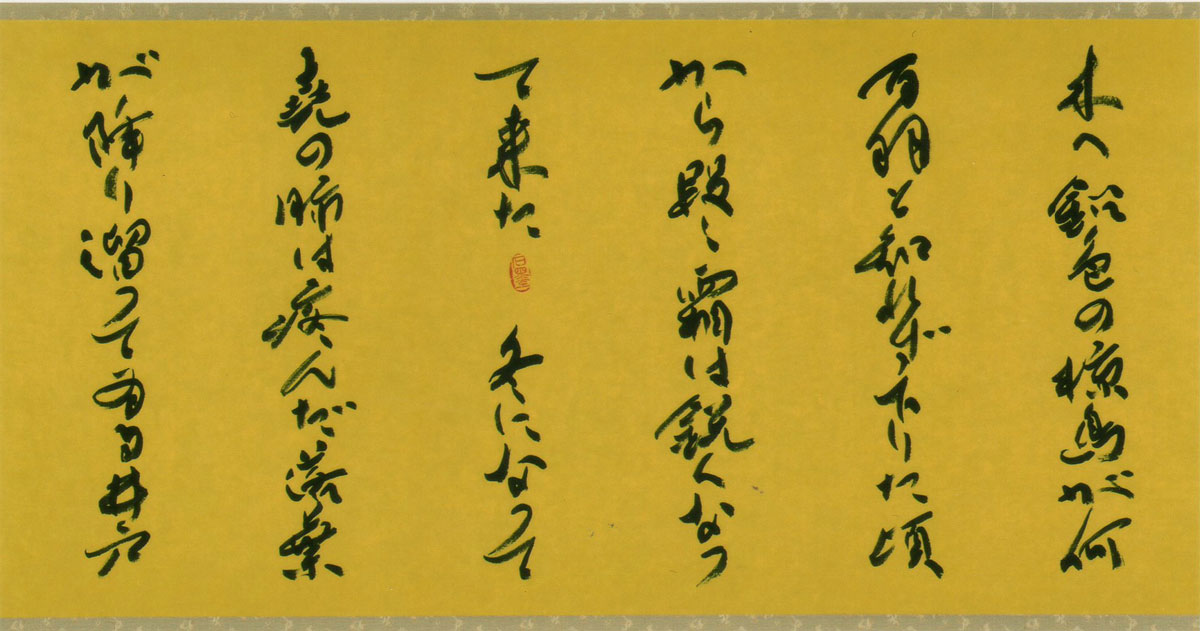 木へ鉛色の椋鳥が何
百羽と知れず下りた頃
から段々霜は鋭くなつ
て来た 冬になつて
堯の肺は疼んだ落葉
が降り溜つてゐる井戸